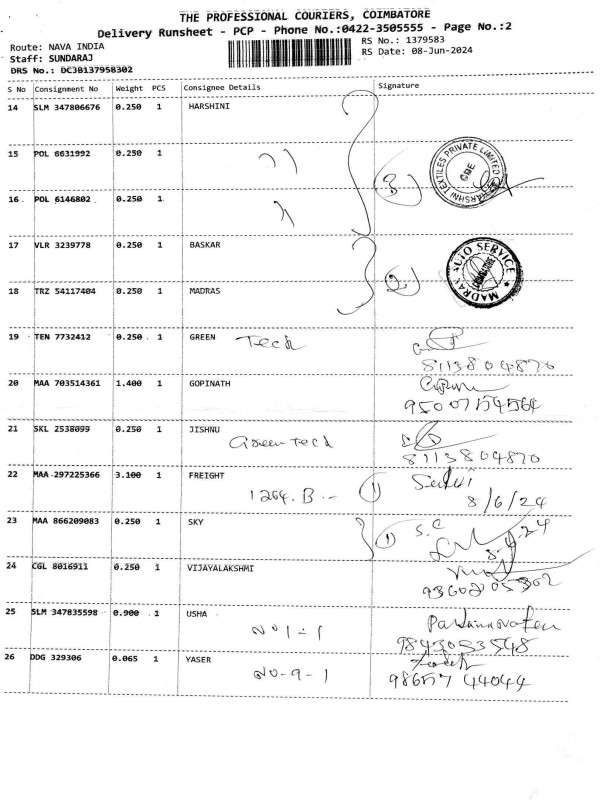 THE PROFESSIONAL COURIERS, COIMBATORE
Delivery Runsheet - PCP - Phone No.:0422-3505555 - Page No.:2
Route: NAVA INDIA
RS No.: 1379583
Staff: SUNDARAJ
RS Date: 08-Jun-2024
DRS No.: DCJB137958302
S No Consignment No Weight PCS Consignee Details Signature
14 SLM 347806676 0.250 1 HARSHINI
15 POL 6631992 0.250 1
3
HARSHNI TEXTILES PRIVATE LIMITED CBE
16 POL 6146802 0.250 1
17 VLR 3239778 0.250 1 BASKAR
2
MADRAS AUTO SERVICE
18 TRZ 54117404 0.250 1 MADRAS
19 TEN 7732412 0.250 1 GREEN Tech
8113804870
20 MAA 703514361 1.400 1 GOPINATH
9500754564
21 SKL 2538099 0.250 1 JISHNU
Green Tech
8113804870
22 MAA 297225366 3.100 1 FREIGHT
1264.B.- 1 Selvi
8/6/24
23 MAA 866209083 0.250 1 SKY
1 S.C
24 CGL 8016911 0.250 1 VIJAYALAKSHMI
25 SLM 347835598 0.900 1 USHA
No 1-1
9843053548
26 DDG 329306 0.065 1 YASER
No-9-1
9865744044